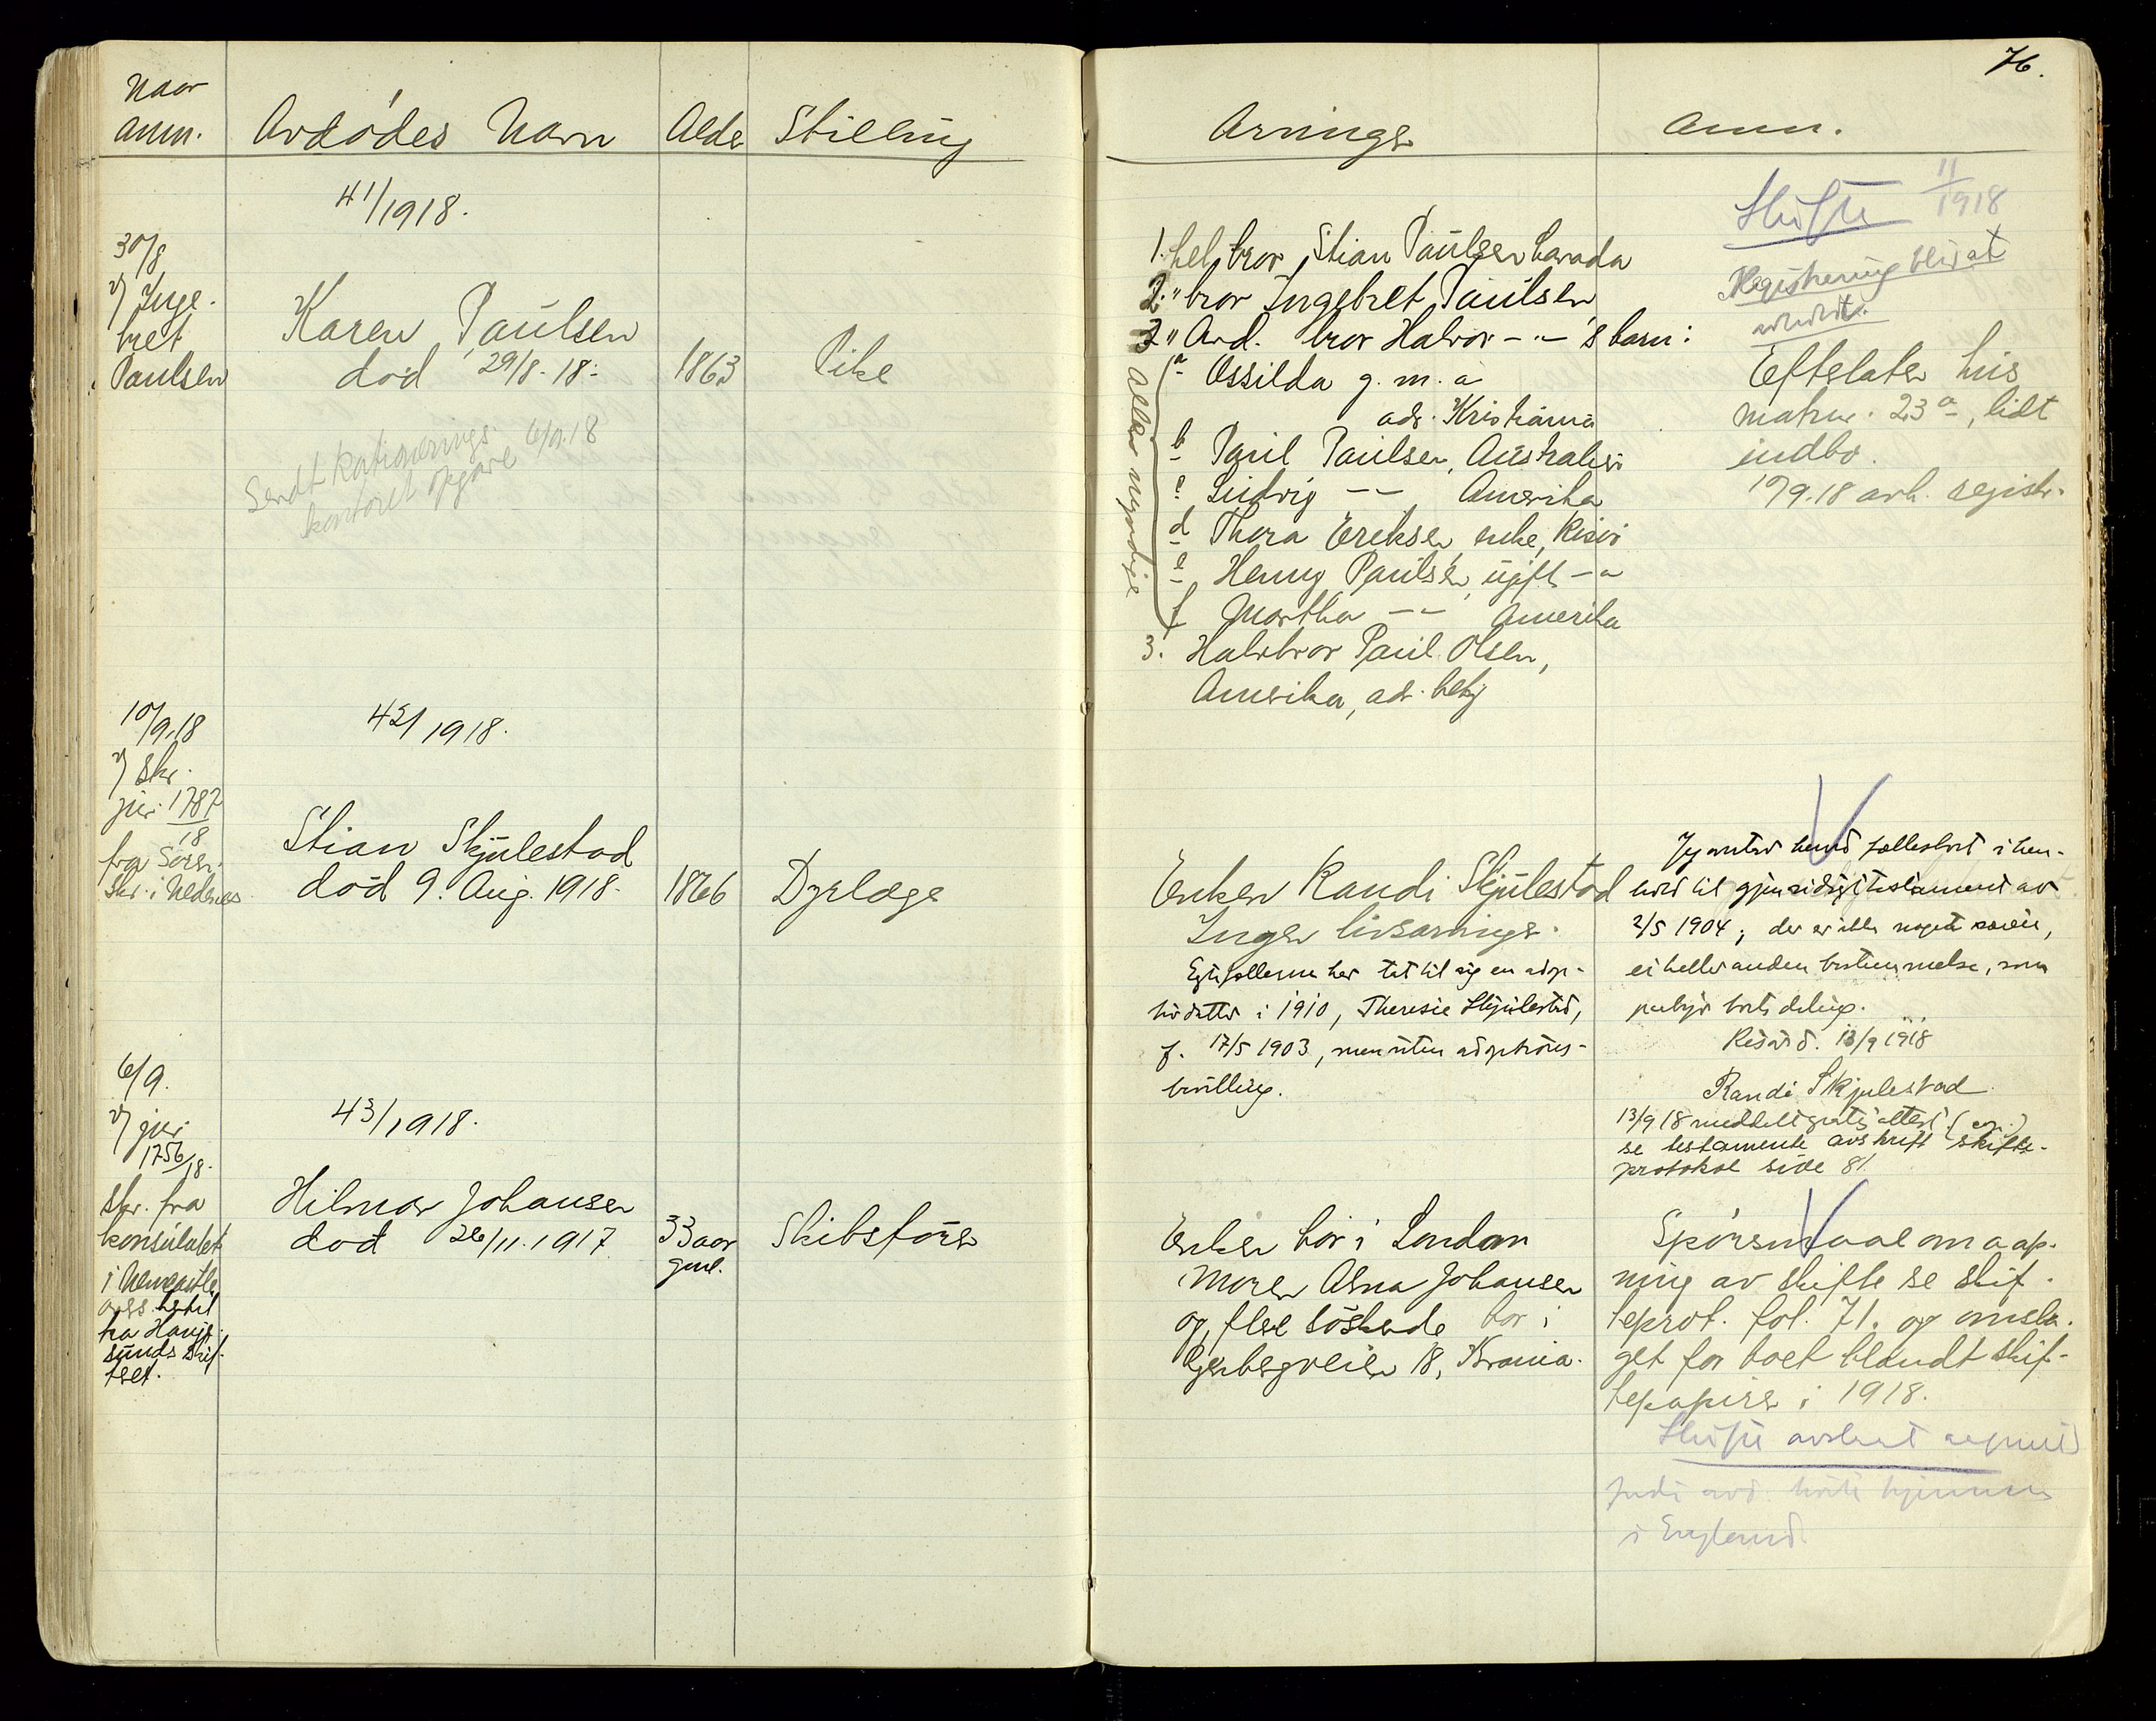 76.
Naar
anm.
Avdødes Navn
Alder
Stilling
Arvinge
Anm.
41/1918.
30/8
v/ Inge-
bret
Paulsen
Karen Paulsen
død 29/8-18.
1863
Pike
Sendt Rationerings-
kontoret opgave 6/9.18
1. hel bror Stian Paulsen Canada
2. " bror Ingebret Paulsen
3 " Avd. bror Halvor -"- s barn:
a Ossilda g. m. a
adr. Kristiania
b Paul Paulsen, Australien
c Ludvig -"- Amerika
d Thora Eriksen, enke, Risør
e Henny Paulsen, ugift -"-
f Martha -"- Amerika
Alle myndige
3. Halvbror Paul Olsen,
Amerika, adr. bekj
Skifte 11/1918
Registrering blir at
Efterlater hus
matr. 23a, lidt
indbo.
10/9.18 avh. registr.
42/1918.
10/9.18
v/ Skr.
jur. 1787/18
fra Soren-
skr. i Nedenes
Stian Skjulestad
død 9. Aug. 1918.
1866
Dyrlæge
Enken Randi Skjulestad
Ingen livsarvinge.
Egtefællerne har tat til sig en adop-
tivdatter i 1910, Theresie Skjulestad,
f. 17/5 1903, men uten adoptions-
bevilling.
Jeg overtar hermed fællesboet i hen-
hold til gjensidig testament av
2/5 1904; der er ikke noget særeie,
ei heller anden bestemmelse, som
paabyr boets deling.
Risør d. 13/9 1918
Randi Skjulestad
13/9 18 meddelt gratis attest
se testamente avskrift skifte-
protokol side 81.
43/1918.
6/9.
v/ jur.
1756/18.
skr. fra
konsulatet
i Newcastle
fra Hauge-
sunds skif-
teret.
Hilmar Johansen
død 26/11.1917
33 aar
gml.
Skibsfører
Enken bor i London
Moren Asna Johansen
og flere søskende bor i
18, Krania.
Spørsmaal om aap-
ning av skifte se skif-
teprot. fol. 71. og omsla-
get for boet blandt skif-
tepapirer i 1918.
Skifte avsluttet
i England.